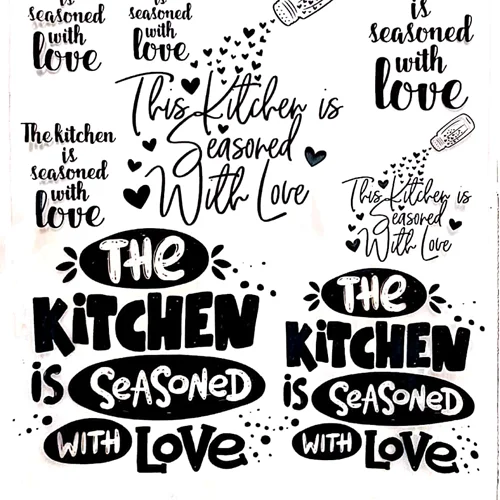 is
seasoned
with
love
is
seasoned
with
love
is
seasoned
with
love
This Kitchen is
Seasoned
With Love
The kitchen
is
seasoned
with
love
This Kitchen is
Seasoned
With Love
THE
KiTCHEN
iS
SeASONED
WITH LOVe
THE
KiTCHEN
iS
SeASONED
WITH LOVe